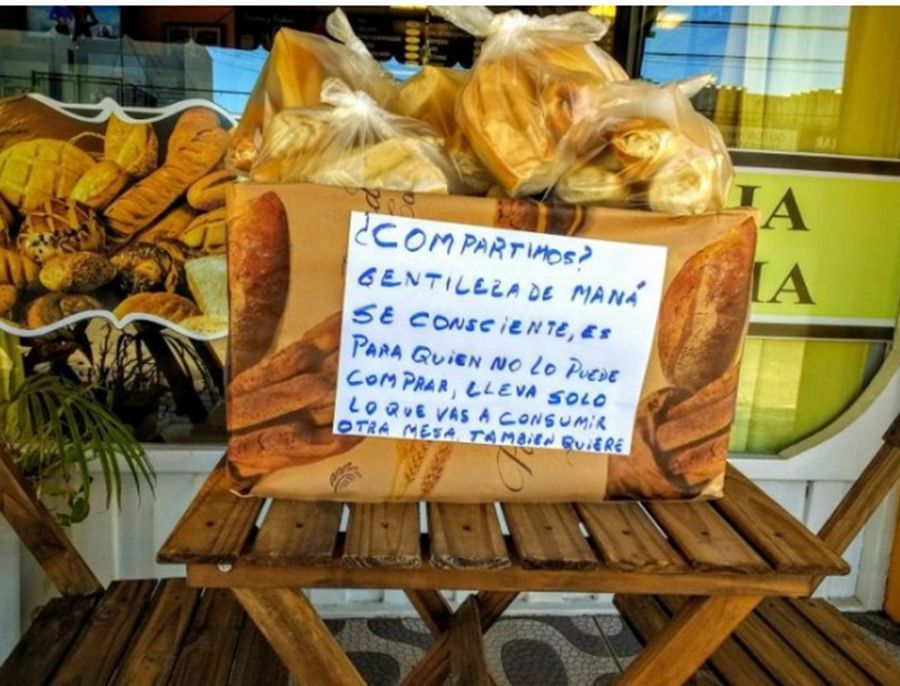 ¿COMPARTIMOS?
GENTILEZA DE MANÁ
SE CONSCIENTE, ES
PARA QUIEN NO LO PUEDE
COMPRAR, LLEVA SOLO
LO QUE VAS A CONSUMIR
OTRA MESA TAMBIEN QUIERE
IA
IA